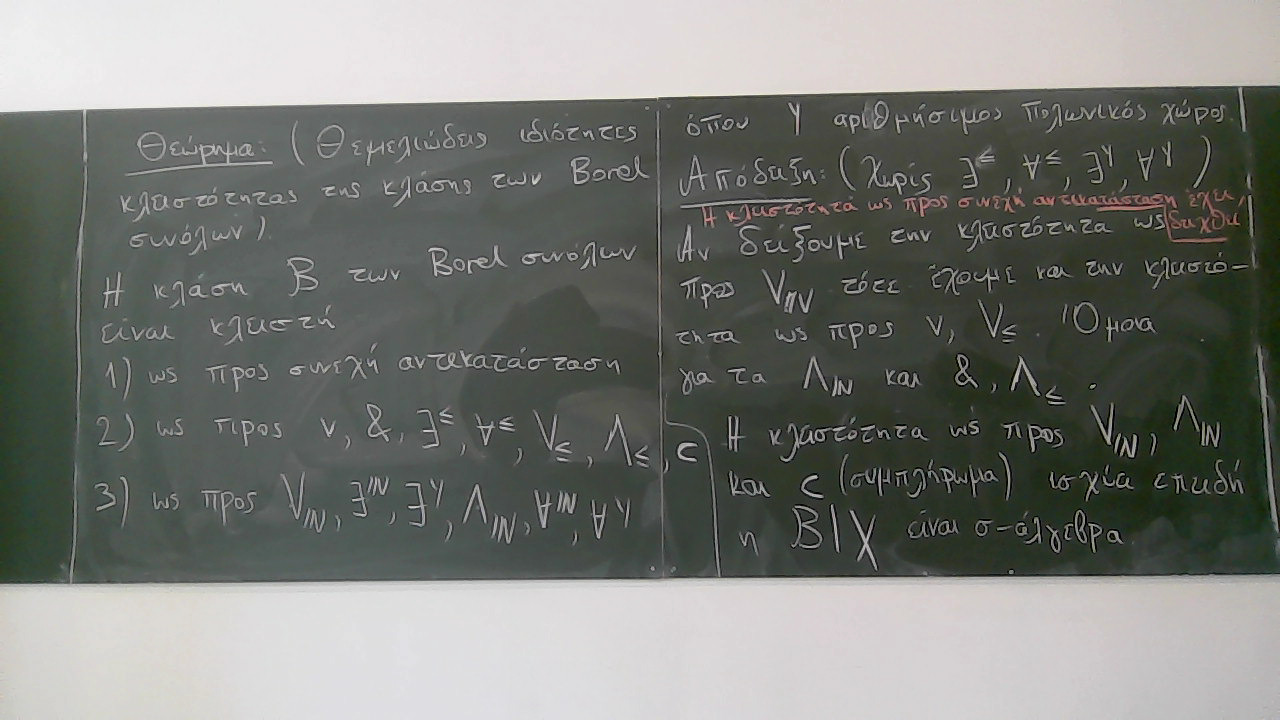 Θεώρημα: (Θεμελιώδεις ιδιότητες
κλειστότητας της κλάσης των Borel
συνόλων).
Η κλάση B των Borel συνόλων
είναι κλειστή
1) ως προς συνεχή αντικατάσταση
2) ως προς ∨, &, ∃^≤, ∀^≤, ⋁_≤, ⋀_≤, c
3) ως προς ⋁_ℕ, ∃^ℕ, ∃^Y, ⋀_ℕ, ∀^ℕ, ∀^Y
όπου Y αριθμήσιμος πολωνικός χώρος.
Απόδειξη: (Χωρίς ∃^≤, ∀^≤, ∃^Y, ∀^Y)
Η κλειστότητα ως προς συνεχή αντικατάσταση έχει
δειχθεί
Αν δείξουμε την κλειστότητα ως
προς ⋁_ℕ τότε έχουμε και την κλειστό-
τητα ως προς ∨, ⋁_≤. Όμοια
για τα ⋀_ℕ και &, ⋀_≤.
Η κλειστότητα ως προς ⋁_ℕ, ⋀_ℕ
και c (συμπλήρωμα) ισχύει επειδή
η B|X είναι σ-άλγεβρα.